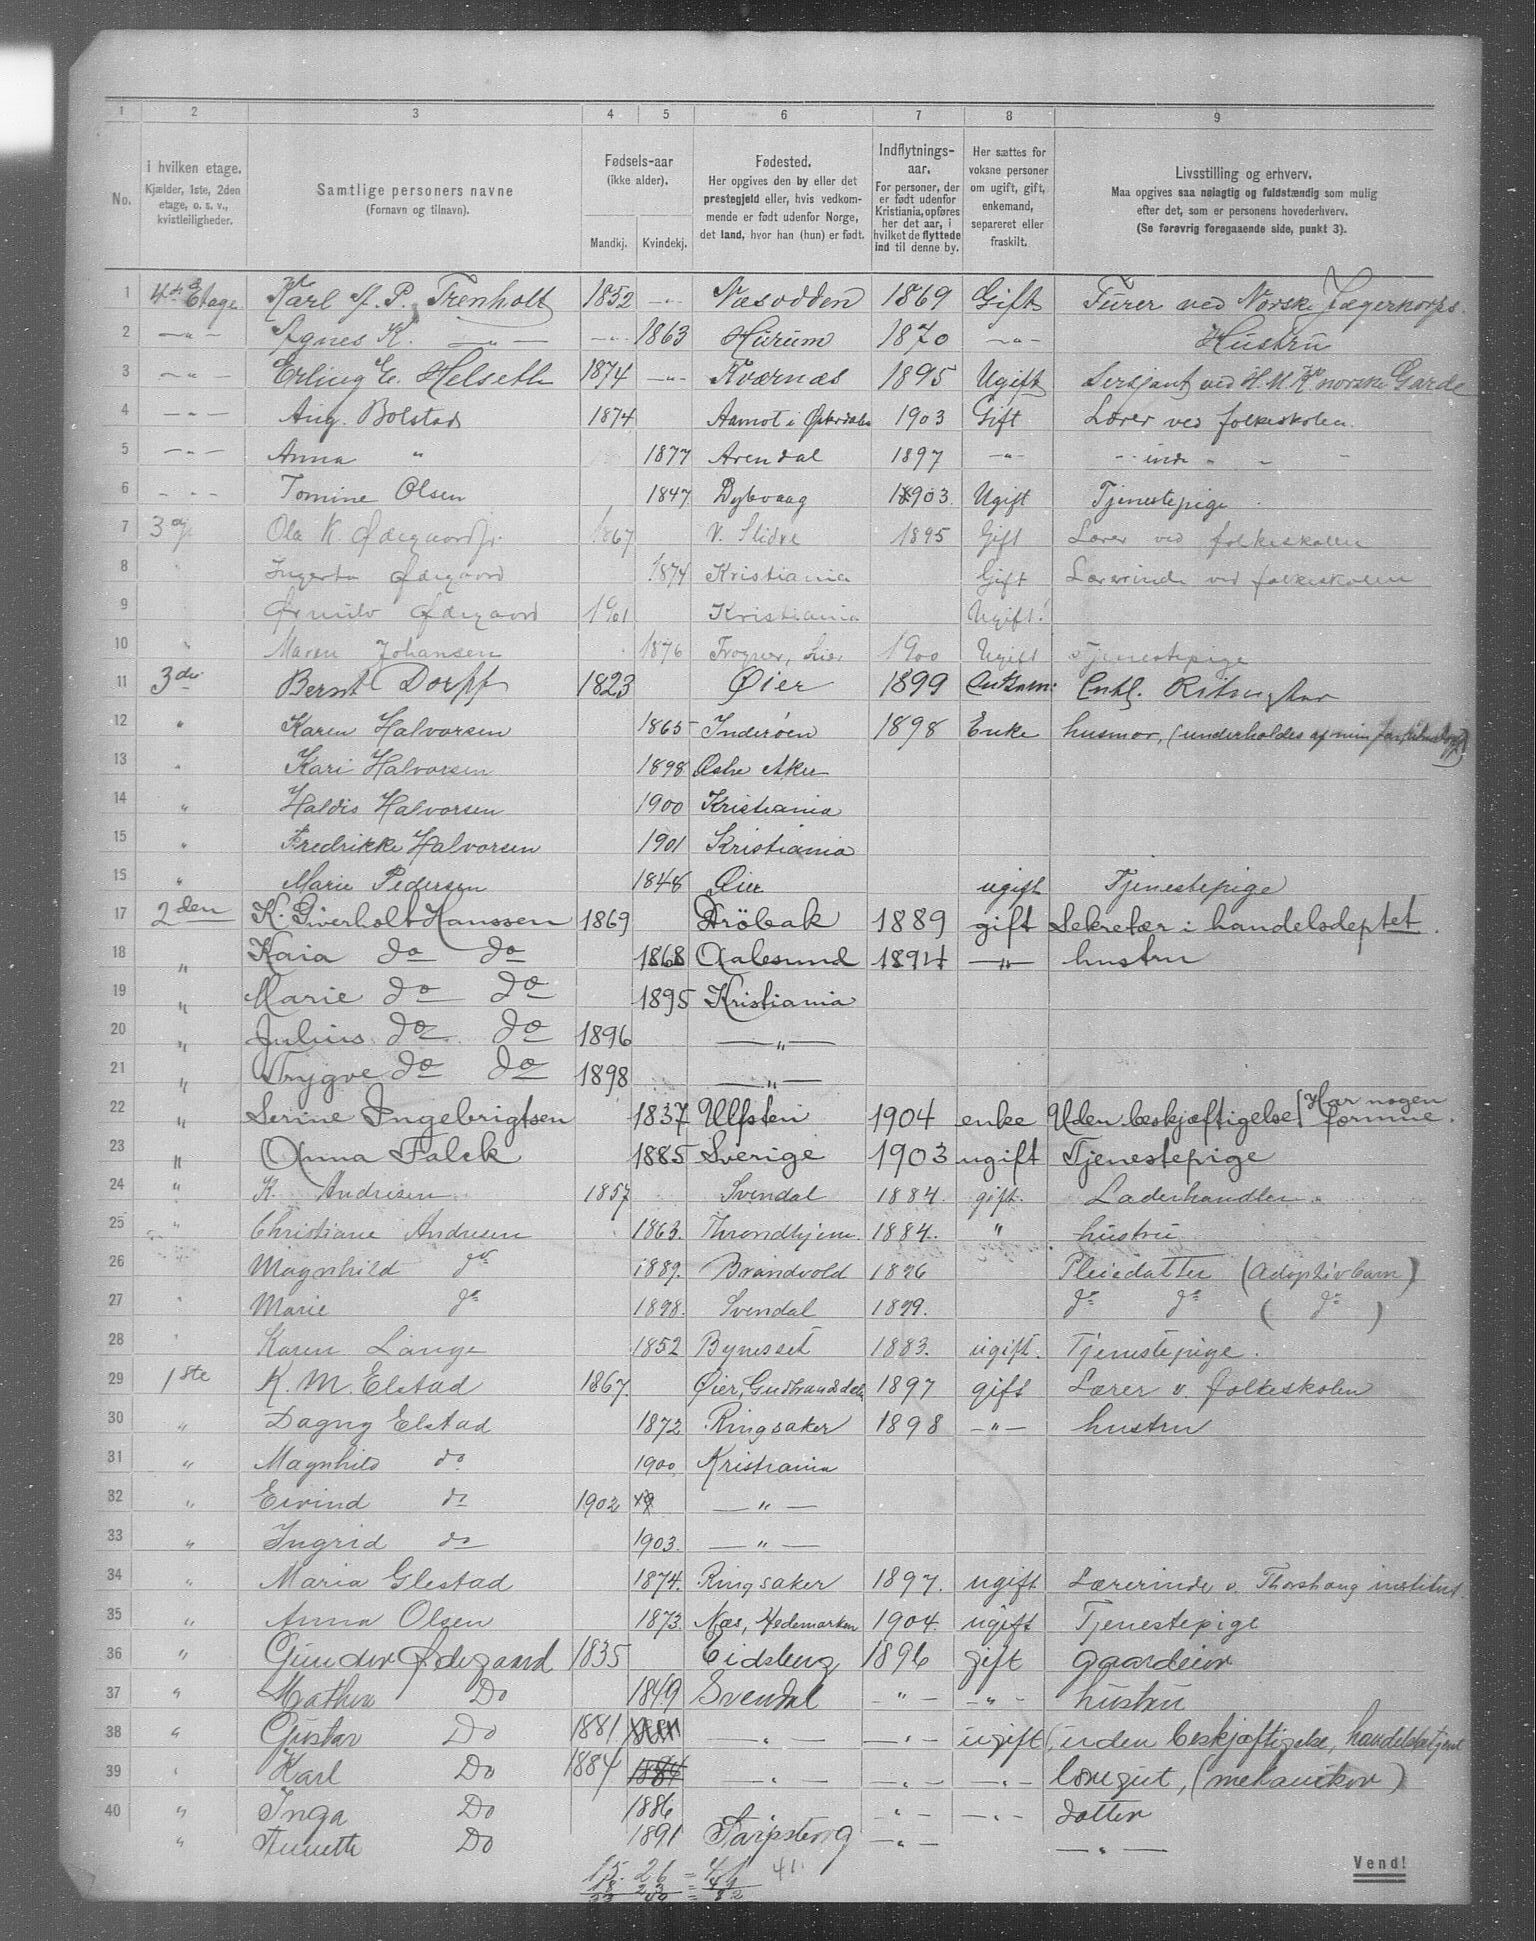 1 2 3 4 5 6 7 8 9
No. I hvilken etage. Kjælder, 1ste, 2den etage, o. s. v., kvistleiligheder. Samtlige personers navne (Fornavn og tilnavn). Fødsels-aar (ikke alder). Mandkj. Kvindekj. Fødested. Her opgives den by eller det prestegjeld eller, hvis vedkommende er født udenfor Norge, det land, hvor han (hun) er født. Indflytnings-aar. For personer, der er født udenfor Kristiania, opføres her det aar, i hvilket de flyttede ind til denne by. Her sættes for voksne personer om ugift, gift, enkemand, separeret eller fraskilt. Livsstilling og erhverv. Maa opgives saa nøiagtig og fuldstændig som mulig efter det, som er personens hovederhverv. (Se forøvrig foregaaende side, punkt 3).
1 4de Etage Karl A. P. Trenholt 1852 — " — Næsodden 1869 Gift Furer ved Norske Jægerkorps.
2 — " — Agnes K. — " — — " — 1863 Hurum 1870 — " — Hustru
3 — " — Erling E. Helseth 1874 — " — Kværnæs 1895 Ugift Sersjant ved H. M. K. norske Garde
4 — " — Aug. Bolstad 1874 Aamot i Østerdalen 1903 Gift Lærer ved folkeskolen.
5 — " — Anna " 1877 Arendal 1897 — " — — " — inde " — " —
6 — " — Tomine Olsen 1847 Dybvaag 1903. Ugift Tjenestepige
7 3 Ola K. Ødegaard jr. 1867 V. Slidre 1895 Gift Lærer ved folkeskolen
8 " Ingerta Ødegaard 1874 Kristiania Gift Lærerinde ved folkeskolen
9 Ødegaard 1901 Kristiania Ugift!
10 " Maren Johansen 1876 Frogner, Lier 1900 Ugift Tjenestepige
11 3die Bernt Dorff 1823 Øier 1899 Enkem:
12 " Karen Halvorsen 1865 Inderøen 1898 Enke husmor, (underholdes af min far
13 " Kari Halvorsen 1898 Østre Aker
14 " Haldis Halvorsen 1900 Kristiania
15 " Fredrikke Halvorsen 1901 Kristiania
15 " Marie Pedersen 1848 Øier ugift Tjenestepige
17 2den K. Giverholt Hanssen 1869 Drøbak 1889 gift Sekretær i handelsdeptet.
18 " Kaia do do 1868 Aalesund 1894 — " — hustru
19 " Marie do do 1895 Kristiania
20 " Julius do do 1896 — " —
21 " Trygve do do 1898 — " —
22 " Serine Ingebrigtsen 1837 Ulfsten 1904 enke Uden beskjæftigelse [Har nogen formue.
23 " Anna Falck 1885 Sverige 1903 ugift Tjenestepige
24 " K. Andresen 1857 Svendal 1884. gift. Læderhandler.
25 " Christiane Andresen 1863. Throndhjem. 1884. " hustru
26 " Magnhild do 1889. Brandvold 1896 Pleiedatter (Adoptivbarn)
27 " Marie do 1898. Svendal 1899. do do ( do )
28 " Karen Lange 1852 Bynesset 1883. ugift. Tjenestepige.
29 1ste K. M. Elstad 1867 Øier, Gudbrandsdalen 1897 gift Lærer v. folkeskolen
30 " Dagny Elstad 1872 Ringsaker 1898 — " — hustru
31 " Magnhild do 1900 Kristiania
32 " Eivind do 1902 — " —
33 " Ingrid do 1903. — " —
34 " Maria Glestad 1874. Ringsaker 1897. ugift Lærerinde v. Thorshaug institut.
35 " Anna Olsen 1873. Næs, Hedemarken 1904. ugift Tjenestepige
36 " Gunder Ødegaard 1835 Eidsberg 1896 gift gaardeier
37 " Mathea Do 1849 Svendal — " — — " — hustru
38 " Gustav Do 1881. — " — — " — ugift (uden beskjæftigelse, handelsbetjent
39 " Karl Do 1884 1884 — " — — " — — " — læregut, (mekaniker)
40 " Inga Do 1886 — " — — " — datter
" Do 1891 Sarpsborg — " — — " —
15. 26 = 41 41.
18 23 = 41
33 49 = 82
Vend!